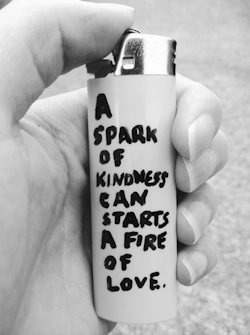 A
SPARK
OF
KINDNESS
CAN
STARTS
A FIRE
OF
LOVE.